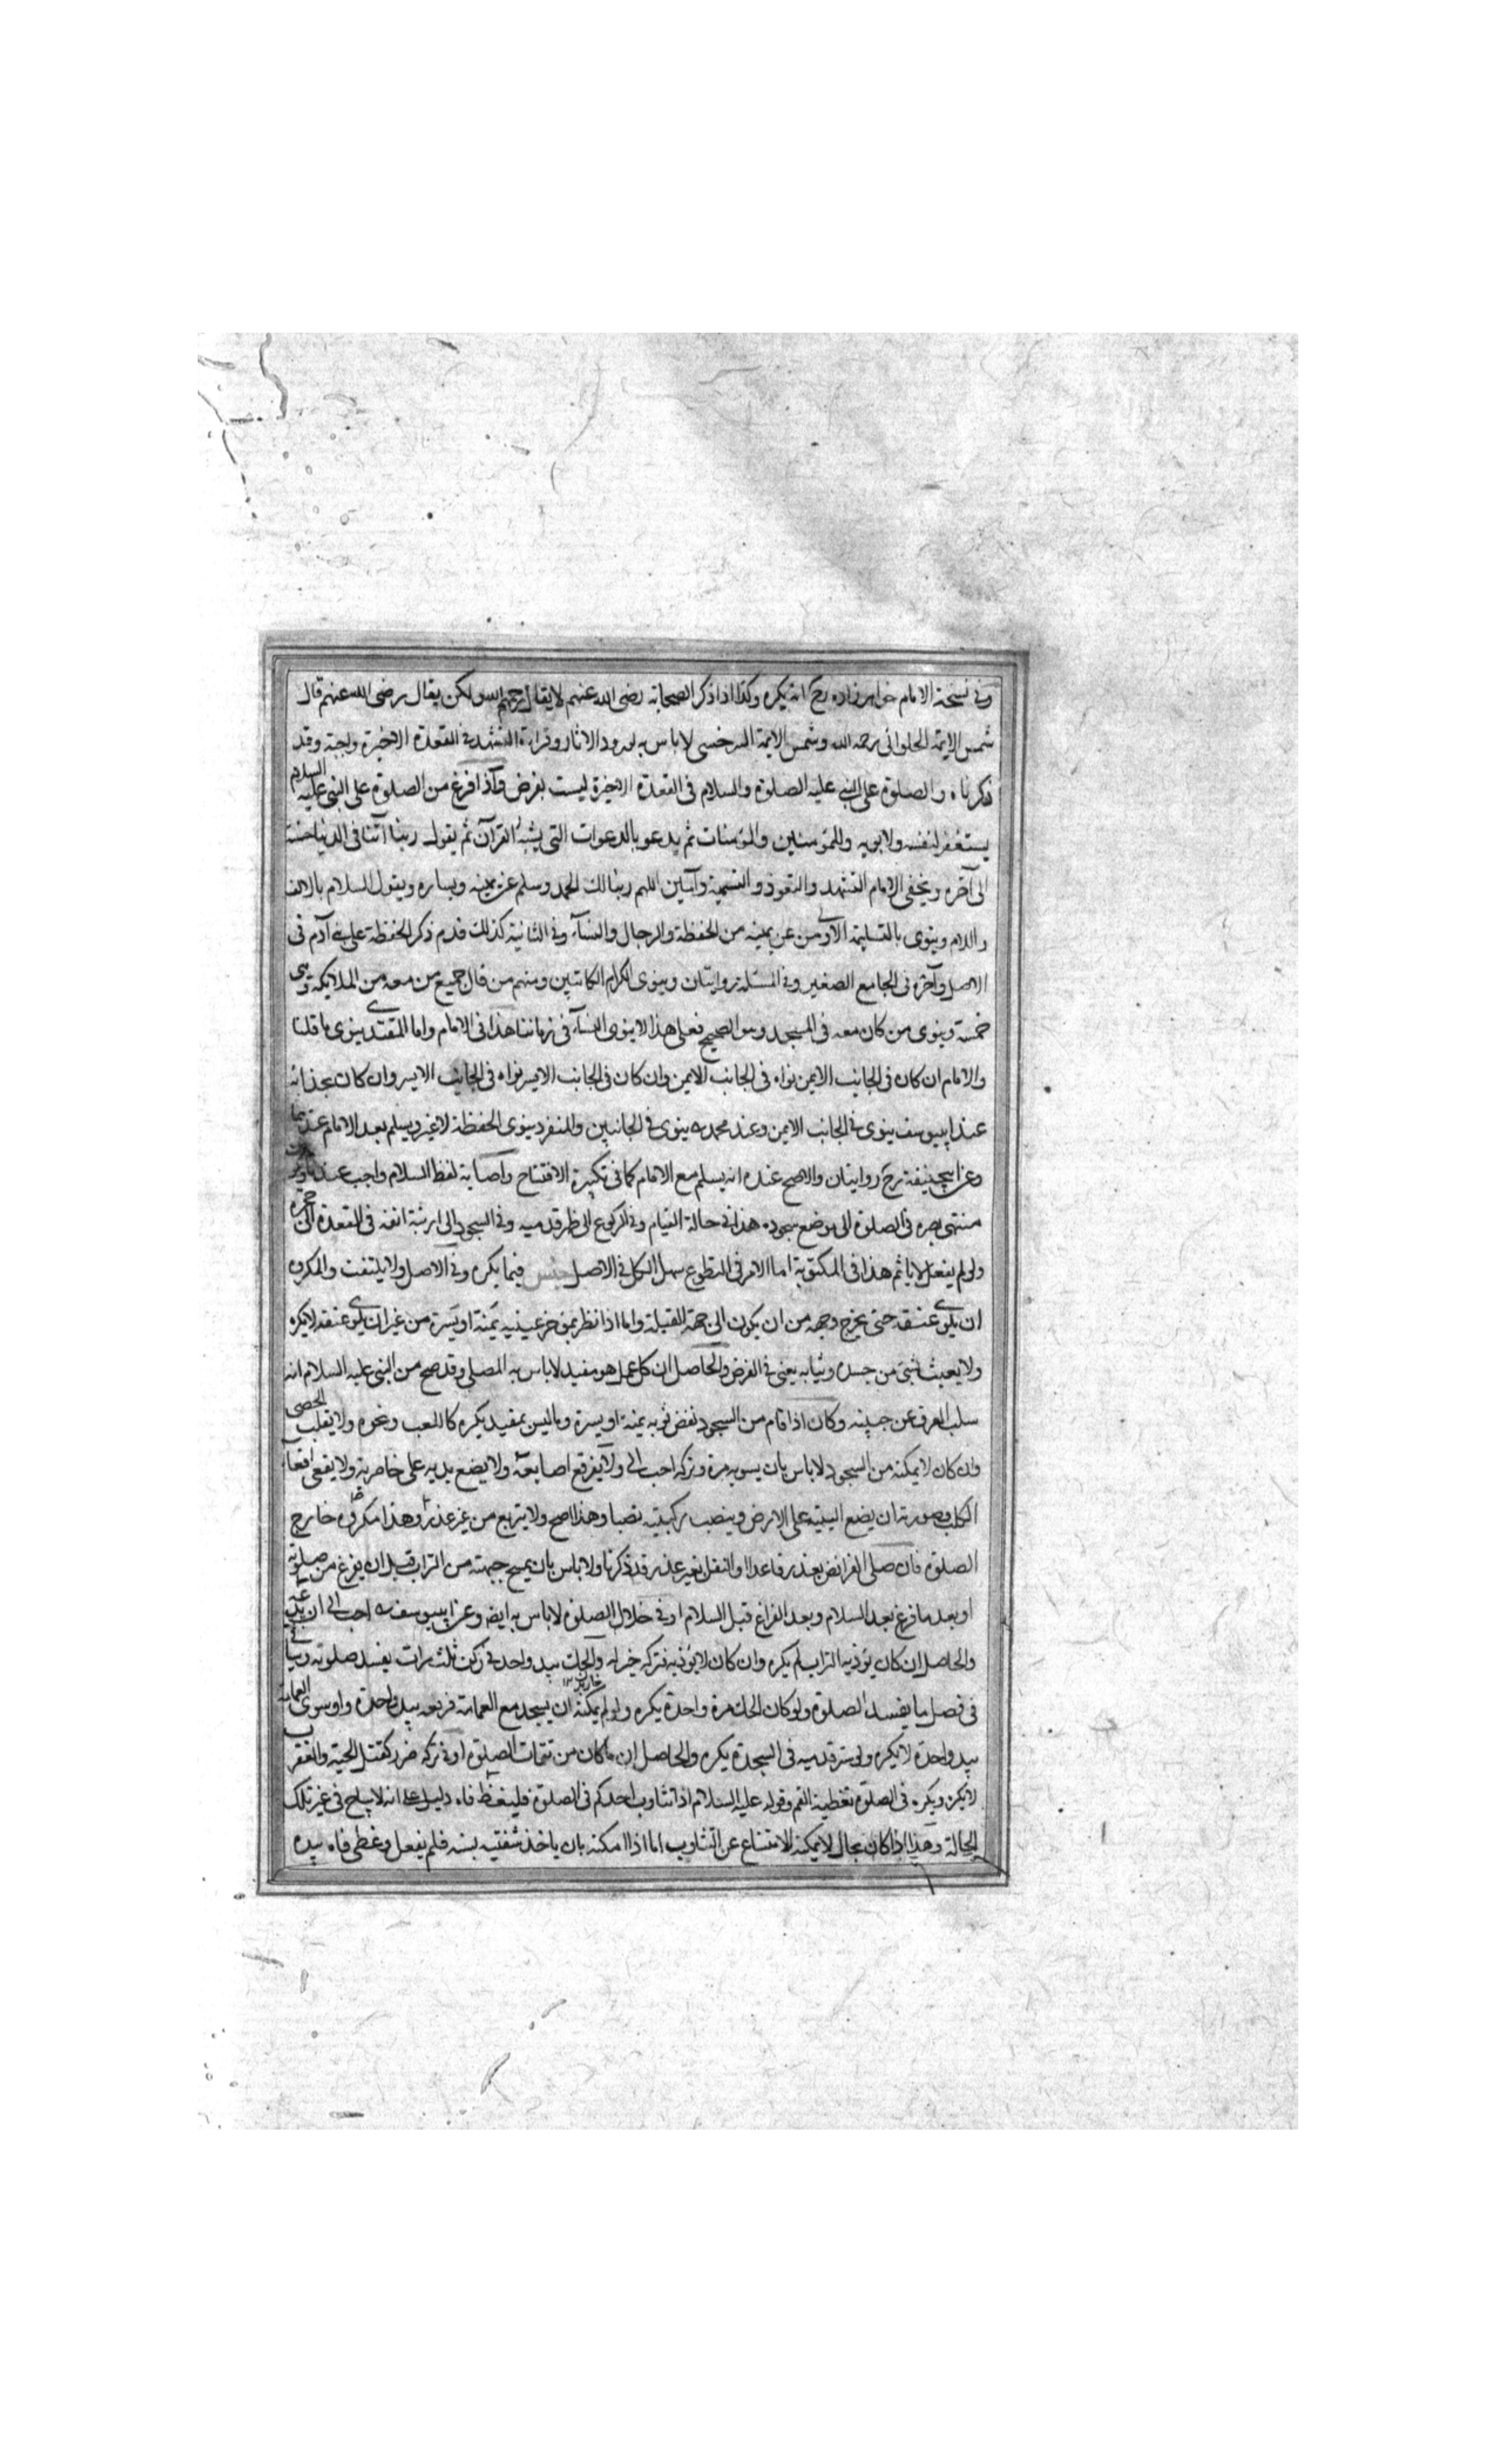 وفى نسخة الامام خواهرزاده رح انه يكره وكذا اذا ذكر الصحابة رضى الله عنهم لا يقال رحمهم الله ولكن يقال رضى الله عنهم قال
شمس الايمة الحلوانى رحمه الله وشمس الايمة السرخسى لا باس به لورود الاثار وقراءة التشهد فى القعدة الاخيرة واجبة وقد
ذكرناه والصلوة على النبى عليه الصلوة والسلام فى القعدة الاخيرة ليست بفرض واذا فرغ من الصلوة على النبى عليه السلام
يستغفر لنفسه ولابويه وللمؤمنين والمؤمنات ثم يدعو بالدعوات التى يشبه القرآن ثم يقول ربنا آتنا فى الدنيا حسنة
الى آخره ويخفى الامام التشهد والتعوذ والتسمية وآمين اللهم ربنا لك الحمد وسلم عن يمينه ويساره ويقول السلام بالالف
واللام وينوى بالتسليمة الاولى من عن يمينه من الحفظة والرجال والنسآء وفى الثانية كذلك قدم ذكر الحفظة على بنى آدم فى
الاصل وآخره فى الجامع الصغير وفى المسئلة روايتان وينوى الكرام الكاتبين ومنهم من قال جميع من معه من الملايكة وهى
خمسة وينوى من كان معه فى المسجد وهو الصحيح فعلى هذا لا ينوى النسآء فى زماننا هذا فى الامام واما المقتدى ينوى ما قلنا
والامام ان كان فى الجانب الايمن نواه فى الجانب الايمن وان كان فى الجانب الايسر نواه فى الجانب الايسر وان كان بحذائه
عند ابيوسف ينوى فى الجانب الايمن وعند محمد ره ينوى فى الجانبين والمنفرد ينوى الحفظة لا غير ويسلم بعد الامام عندهما
وعن ابيحنيفة رح روايتان والاصح عنده انه يسلم مع الامام كما فى تكبيرة الافتتاح واصابة لفظ السلام واجب عندنا
منتهى بصره فى الصلوة الى موضع سجوده هذا فى حالة القيام وفى الركوع الى ظهر قدميه وفى السجود الى ارنبة انفه فى القعدة الى حجره
ولو لم يفعل لا ياثم هذا فى المكتوبة اما الامر فى التطوع سهل الكل فى الاصل جنس فيما يكره وفى الاصل ولا يلتفت والمكروه
ان يلوى عنقه حتى يخرج وجهه من ان يكون الى جهة القبلة واما اذا نظر بمؤخر عينيه يمنة او يسرة من غير ان يلوى عنقه لا يكره
ولا يعبث بشئ من جسده وثيابه يعنى فى الفرض والحاصل ان كل عمل هو مفيد لا باس به المصلى وقد صح من النبى عليه السلام انه
سلت العرق عن جبينه وكان اذا قام من السجود نفض ثوبه يمنة او يسرة وما ليس بمفيد يكره كاللعب ونحوه ولا يقلب الحصى
وان كان لا يمكنه من السجود لا باس بان يسويه مرة وتركه احب الى ولا يفرقع اصابعه ولا يضع يديه على خاصرته ولا يقعى اقعآء
الكلب وصورته ان يضع اليتيه على الارض وينصب ركبتيه نصبا وهذا اصح ولا يتربع من غير عذر وهذا مكروه خارج
الصلوة فان صلى الفرائض بعذر قاعدا او النفل بغير عذر قد ذكرنا ولا باس بان يمسح جبهته من التراب قبل ان يفرغ من صلوته
او بعد ما فرغ بعد السلام وبعد الفراغ قبل السلام او فى خلال الصلوة لا باس به ايضا وعن ابييوسف ره احب الى ان يدعه
والحاصل ان كان يؤذيه التراب لم يكره وان كان لا يؤذيه فتركه خير له والحك بيد واحد فى ركن ثلث مرات يفسد صلوته وسياتى
فى فصل ما يفسد الصلوة ولو كان الحك مرة واحدة يكره ولو لم يمكنه ان يسجد مع العمامة فرفعه بيد واحدة واو سوى العمامة
بيد واحدة لا يكره ولو ستر قدميه فى السجدة يكره والحاصل ان ما كان من تتمات الصلوة او فى تركه ضرر كقتل الحية والعقرب
لا يكره ويكره فى الصلوة تغطية الفم وقوله عليه السلام اذا تثاوب احدكم فى الصلوة فليغط فاه دليل على انه لا يباح فى غير تلك
الحالة وهذا اذا كان بحال لا يمكنه الامتناع عن التثاوب اما اذا امكنه بان ياخذ شفتيه بسنه فلم يفعل وغطى فاه بيده